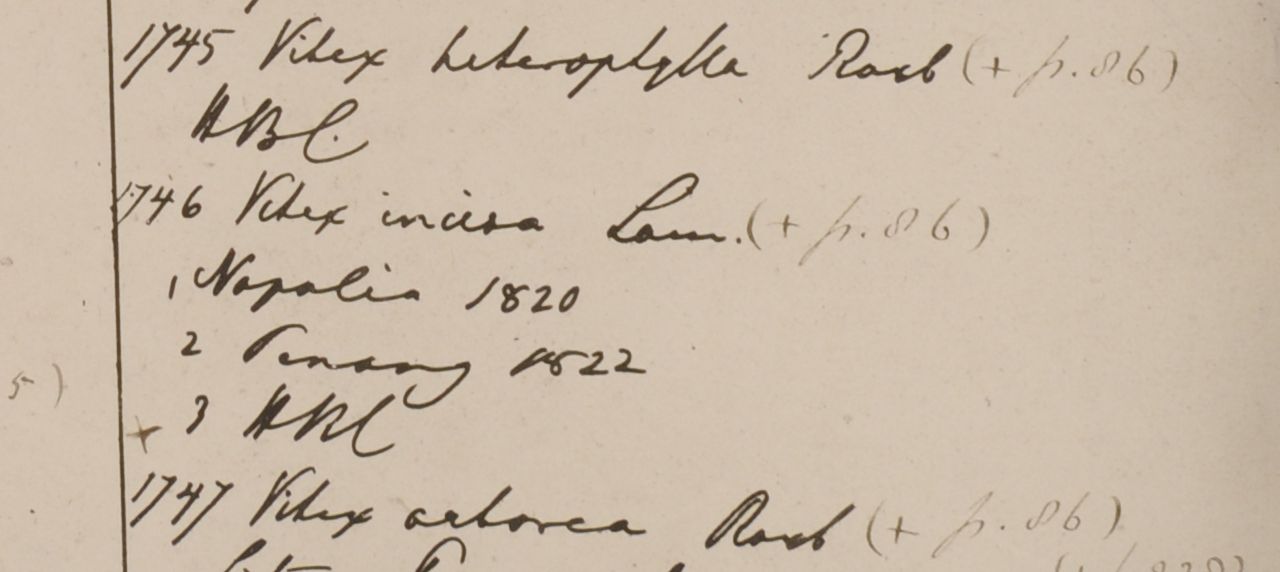 1745 Vitex heterophylla Roxb (+ p. 86)
HBC.
1746 Vitex incisa Lam. (+ p. 86)
1 Napalia 1820
2 Penang 1822
5)
+ 3 HBC
1747 Vitex arborea Roxb (+ p. 86)